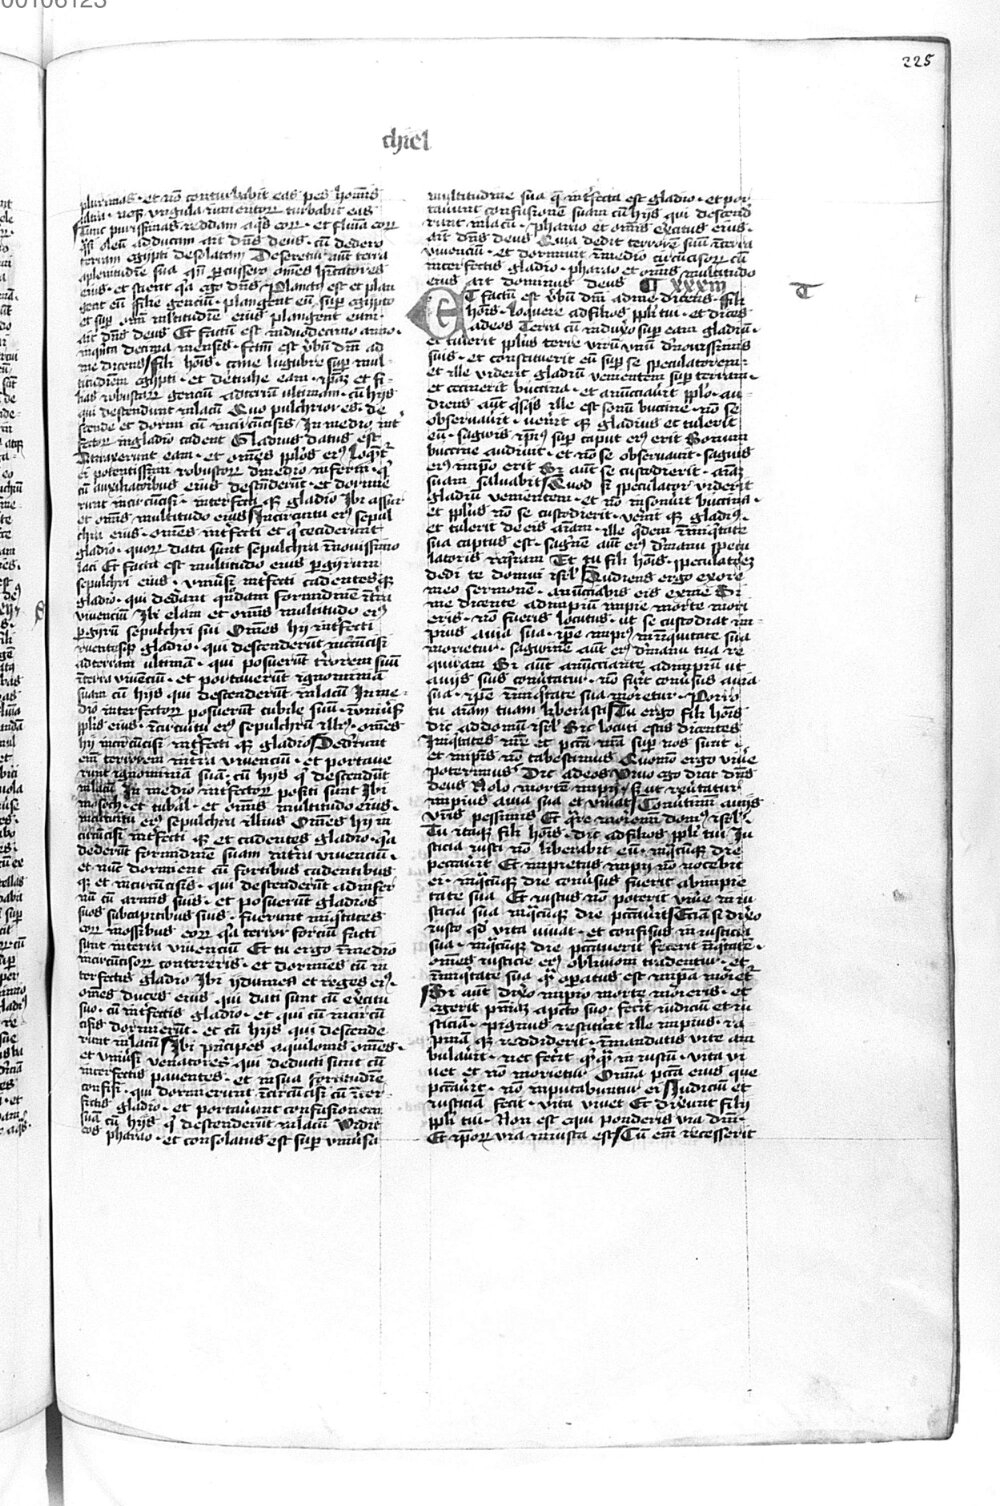 225
chiel
plurimas · et nō conturbabit eas pes hominis
ultra · neq̄ ungula iumentorꝝ turbabit eas
Tunc purissimas reddam aq̄s eorꝝ · et flumīa eorꝝ
q̄si oleū adducam ait dn̄s deus · cū dedero
terram egypti desolatam Deseretur aūt terra
a plenitudīe sua qn̄ ꝑcussero om̄es hītatores
eius · et scient q̄a ego dn̄s Planctꝰ est et plan
gent eū filie genciū · plangent eū sup̄ egypto
et sup̄ om̄i multitudīe eius plangent eum ·
ait dn̄s deus Et factū est in duodecimo anno ·
in quīta decima mensis · factū est v̄bū dn̄i ad
me dicens Fili hoīs · cane lugubre sup̄ mul
titudinem egypti · et detrahe eam · ip̄am et fi-
lias robustarꝝ genciū ad terrā ultimam · cū hijs
qui descendunt in lacū Quo pulchrior es · de
scende et dormi cū incircūcisis In medio int
fectorꝝ in gladio cadent Gladius datus est
Attraxerunt eam · et om̄es pp̄los eiꝰ Loq̄nt̄
ei potentissimi robustorꝝ de medio inferni · q̄
cū auxiliatoribus eius descenderūt · et dormie
runt incircūcisi · interfecti q̄ gladio Ibi assur
et om̄is multitudo eius In circuitu eiꝰ sepul
chra eius · om̄es int̄fecti et q̄ ceciderunt
gladio · quorꝝ data sunt sepulchra ī novissimo
laci Et facta est multitudo eius ꝑ gyrum
sepulchri eius · vniūsi int̄fecti cadentes q̄
gladio · qui dederant q̄ondam formidinē ī t̄ra
viventiū Ibi elam et om̄is multitudo eiꝰ
ꝑ gyrū sepulchri sui Om̄es hij int̄fecti
ruentes q̄ gladio · qui descenderūt incircūcisi
ad terram ultimā · qui posuerūt t̄rrorem suū
ī terra viventiū · et portaverūt ignominiā
suam cū hijs qui descenderūt in lacū In me-
dio interfectorꝝ posuerūt cubile suū · ī vniūsis
pp̄lis eius · in circuitu eiꝰ sepulchrū illiꝰ · om̄es
hij incircūcisi int̄fecti q̄ gladio Dederunt
em̄ terrorem in terra viventiū · et portave
runt ignominiā suā · cū hijs q̄ descendūt
in lacū In medio int̄fectorꝝ positi sunt Ibi
mosoch · et tubal · et om̄is multitudo eius ·
in circuitu eiꝰ sepulchra illius Om̄es hij in
circūcisi int̄fecti q̄ et cadentes gladio · q̄a
dederūt formidinē suam in terra viventiū ·
et nō dormient cū fortibus cadentibus
q̄ et incircūcisis · qui descenderūt ad infer
nū cū armis suis · et posuerūt gladios
suos sub capitibus suis · fuerunt iniq̄tates
eorꝝ in ossibus eorꝝ q̄a terror forciū facti
sunt in terra viventiū Et tu ergo ī medio
incircūcisorꝝ contereris · et dormies cū in
terfectis gladio Ibi ydumea et reges eiꝰ ·
om̄es duces eius · qui dati sunt cū exc̄itu
suo · cū int̄fectis gladio · et qui cū incircū
cisis dormierūt · et cū hijs qui descende
runt in lacū Ibi prīcipes aquilonis om̄es ·
et vniūsi venatores qui deducti sunt cū
interfectis paventes · et in sua fortitudīe
confusi · qui dormierunt incircūcisi cū īter-
fectis gladio · et portaverunt confusionem
suā cū hijs q̄ descenderūt in lacū Vidit
eos pharao · et consolatus est sup̄ vniūsa
multitudine sua q̄ int̄fecta est gladio · et por
taverunt confusionē suam cū hijs qui descend
erunt in lacū · pharao et om̄is exc̄itus eius ·
ait dn̄s deus Quia dedit terrorē suū ī terra
vivenciū · et dormivit ī medio circūcisorꝝ cū
interfectis gladio · pharao et om̄is multitudo
eius ait dominus deus ¶ xxxiii
T
ET factū est v̄bū dn̄i ad me dicens · fili
hoīs · loquere ad filios pp̄li tui · et dices
ad eos Terra cū induxero sup̄ eam gladiū ·
et tulerit pp̄lus terre virū vnū de novissimis
suis · et constituerit eū sup̄ se speculatorem ·
et ille viderit gladiū venientem sup̄ terram ·
et cecinerit buccina · et annūciaverit pp̄lo · au-
diens aūt q̄sq̄s ille est sonū buccine · nō se
observaverit · venerit q̄ gladius et tulerit
eū · sagwis ip̄ius sup̄ caput eiꝰ erit Sonum
buccine audivit · et nō se observavit · sagwis
eiꝰ in ip̄o erit Si aūt se custodierit · aīam
suam salvabit Quod si speculator viderit
gladiū venientem · et nō insonuerit buccina ·
et pp̄lus nō se custodierit · venerit q̄ gladiꝰ ·
et tulerit de eis aīam · ille q̄dem ī iniq̄tate
sua captus est · sagwinē aūt eiꝰ de manu specu
latoris requiram Et tu fili hoīs · speculatorē
dedi te domui isrl̄ Audiens ergo ex ore
meo sermonē · annūciabis eis ex me Si
me dicente ad impiū impie morte mori
eris · nō fueris locutus · ut se custodiat im-
pius a via sua · ip̄e impiꝰ in iniquitate sua
morietur · sagwinē aūt eiꝰ de manu tua re
quiram Si aūt annūciante ad impiū ut
a viis suis cōvertatur · nō fuerit cōversus a via
sua · ip̄e ī iniq̄tate sua morietur · Porro
tu aīam tuam liberasti Tu ergo fili hoīs
dic ad domū isrl̄ Sic locuti estis dicentes
Iniq̄tates nr̄e et pcc̄ta nr̄a sup̄ nos sunt ·
et in ip̄is nos tabescimus Quomō ergo vivere
poterimus Dic ad eos Vivo ego dicit dn̄s
deus Nolo mortē impij · s; ut rev̄tatur
impius a via sua et vivat Convertimī a viis
vr̄is pessimis Et q̄re moriemī domꝰ isrl̄ ·
Tu itaq̄ fili hoīs · dic ad filios pp̄li tui Iu
sticia iusti nō liberabit eū · in q̄cūq̄ die
peccaverit Et impietas impij nō nocebit
ei · in q̄cūq̄ die conv̄sus fuerit ab impie
tate sua Et iustus nō poterit vivere in iu
sticia sua in q̄cūq̄ die pccaverit Eciam si dixero
iusto qd̄ vita vivat · et confisus in iusticia
sua · in q̄cūq̄ die pccaverit fecerit iniq̄tatē ·
om̄es iusticie eiꝰ oblivioni tradentur · et
ī iniq̄tate sua q̄m operatus est in ip̄a moriet̄
Si aūt dixero impio morte morieris · et
egerit pn̄iam a pcc̄to suo · fecerit iudiciū et iu
sticiam · pignus restituerit ille impius · ra
pinā q̄ reddiderit · ī mandatis vite am
bulaverit · nec fecerit q̄cq̄ iniustū · vita vi
vet et nō morietur Omīa pcc̄ta eius que
pccaverit · nō imputabuntur ei Iudiciū et
iusticiam fecit · vita vivet Et dixerūt filij
pp̄li tui · Non est equi ponderis via dn̄i ·
Et ip̄orꝝ via iniusta est Cū em̄ recesserit